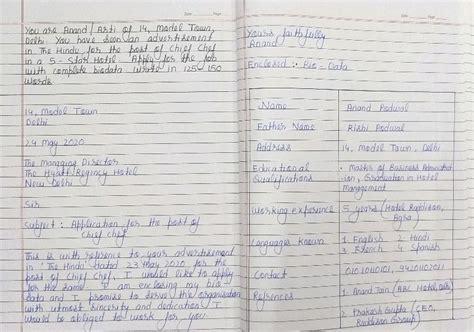 You are Anand / Arti of 14, Model Town,
Delhi. You have seen an advertisement
in The Hindu for the post of Chief Chef
in a 5 - Star Hotel. Apply for the job
with complete biodata. Write in 125-150
words.
14, Model Town
Delhi
24 May 2020
The Managing Director
The Hyatt Regency Hotel
New Delhi
Sir
Subject : Application for the post of
chief chef
This is with reference to your advertisement
in 'The Hindu' dated 23 May 2020 for the
post of Chief Chef. I would like to apply
for the same. I am enclosing my bio-
data and I promise to serve the organisation
with utmost sincerity and dedication. I
would be obliged to work for you.
Yours faithfully
Anand
Enclosed :- Bio - Data
Name Anand Padwal
Father Name Rishi Padwal
Address 14, Model Town, Delhi
Educational Qualifications • Master of Business Administrat
-ion, Graduation in Hotel
Management
Working experience 5 years (Hotel Raddison,
Agra)
Languages Known 1. English 2. Hindi
3. French 4. Spanish
Contact
References 1. Anand Jain (ABC Hotel,
2. Prakash Gupta (CEO,
Raddison Group)